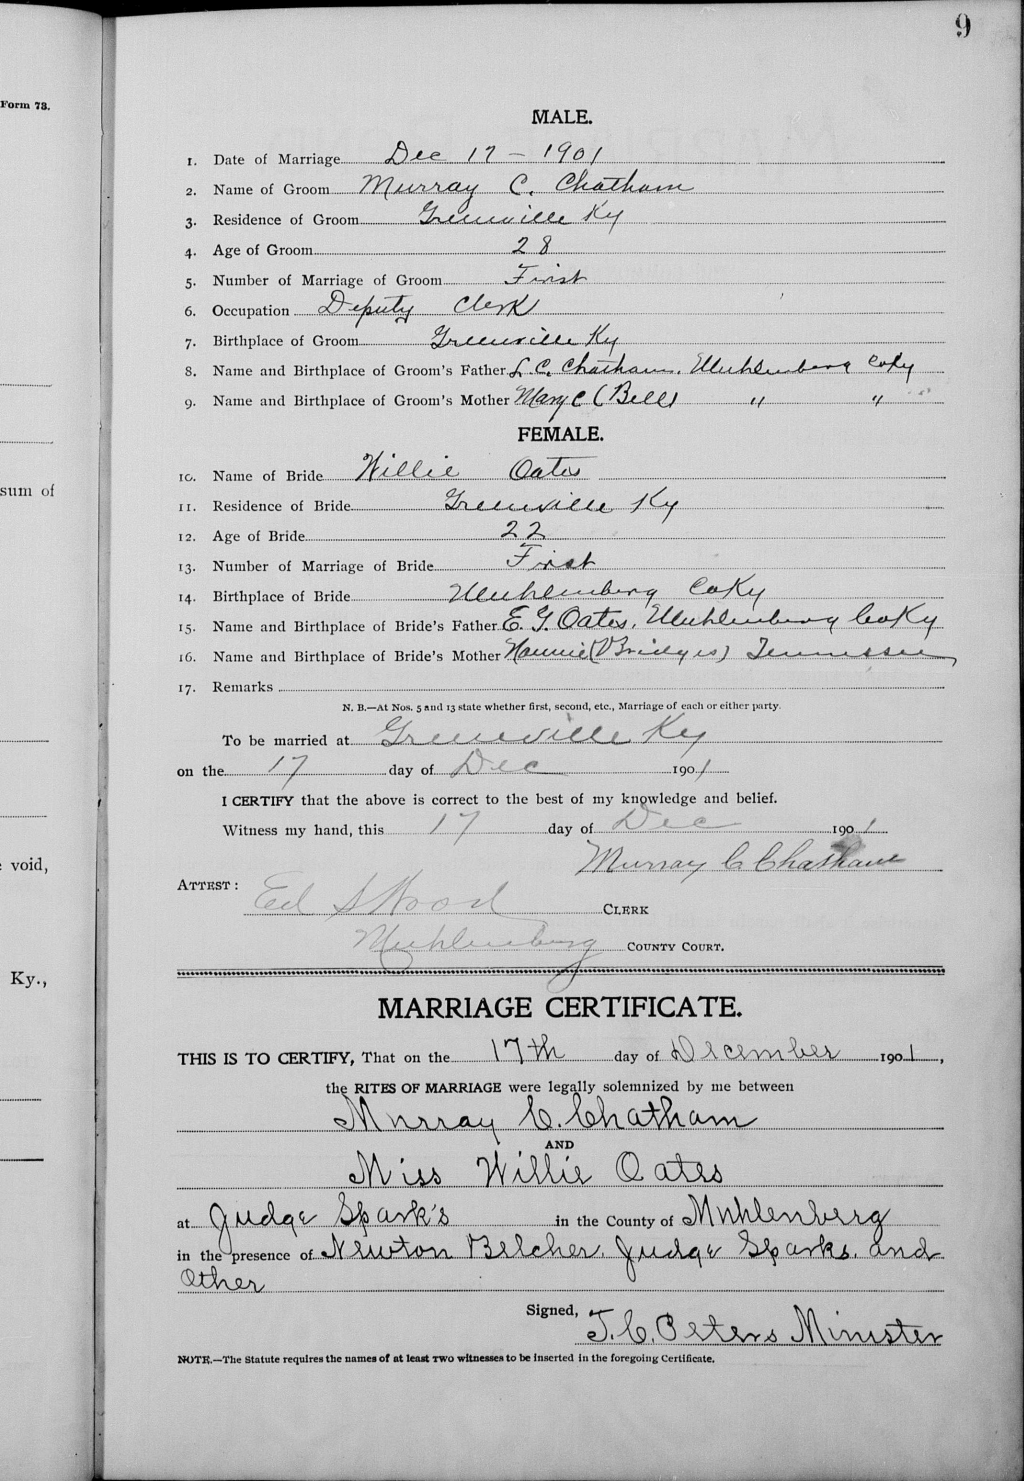 9
Form 73.
sum of
void,
Ky.,
MALE.
1. Date of Marriage Dec 17 - 1901
2. Name of Groom Murray C. Chatham
3. Residence of Groom Greenville Ky
4. Age of Groom 28
5. Number of Marriage of Groom First
6. Occupation Deputy Clerk
7. Birthplace of Groom Greenville Ky
8. Name and Birthplace of Groom's Father L. C. Chatham. Muhlenberg CoKy
9. Name and Birthplace of Groom's Mother Mary C (Bell) " "
FEMALE.
10. Name of Bride Willie Oates
11. Residence of Bride Greenville Ky
12. Age of Bride 22
13. Number of Marriage of Bride First
14. Birthplace of Bride Muhlenberg CoKy
15. Name and Birthplace of Bride's Father E. G. Oates, Muhlenberg CoKy
16. Name and Birthplace of Bride's Mother Nannie (Bridges) Tennessee
17. Remarks
N. B.—At Nos. 5 and 13 state whether first, second, etc., Marriage of each or either party.
To be married at Greenville Ky
on the 17 day of Dec 1901
I CERTIFY that the above is correct to the best of my knowledge and belief.
Witness my hand, this 17 day of Dec 1901
Murray C Chatham
ATTEST: Ed S Wood CLERK
Muhlenberg COUNTY COURT.
MARRIAGE CERTIFICATE.
THIS IS TO CERTIFY, That on the 17th day of December 1901,
the RITES OF MARRIAGE were legally solemnized by me between
Murray C. Chatham
AND
Miss Willie Oates
at Judge Spark's in the County of Muhlenberg
in the presence of Newton Belcher, Judge Sparks, and
Other
Signed, J. C. Peters Minister
NOTE.—The Statute requires the names of at least TWO witnesses to be inserted in the foregoing Certificate.